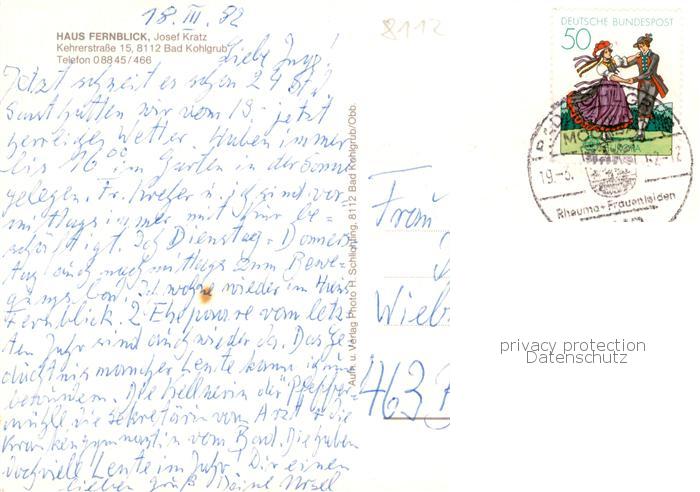 18. III. 82
8112
HAUS FERNBLICK, Josef Kratz
Kehrerstraße 15, 8112 Bad Kohlgrub
Telefon 0 88 45 / 466
Liebe
Jetzt schneit es schon 24 St.!
Sonst hatten wir vom 13. - jetzt
herrliches Wetter. Haben immer
bis 16°° im Garten in der Sonne
gelegen. Fr. u. ich sind vor-
mittags immer mit Kur be-
schäftigt. Ich Dienstag + Donners-
tag auch nachmittags zum Bewe-
gungsbad. Ich wohne wieder im Haus
Fernblick. 2 Ehepaare vom letz-
ten Jahr sind auch wieder da. Das Ge-
dächtnis mancher Leute kann ich nur
bewundern. Die Kellnerin der Pfeffer-
mühle, die Sekretärin vom Arzt + die
Krankengymnastin vom Bad. Die haben
doch viel Leute im Jahr! Dir einen
lieben Gruß Deine Ursel
Aufn. u. Verlag Photo H. Schlichtling, 8112 Bad Kohlgrub/Obb.
DEUTSCHE BUNDESPOST
50
EUROPA
19.-3.
-12
Rheuma-Frauenleiden
Frau
Wieb
463
privacy protection
Datenschutz